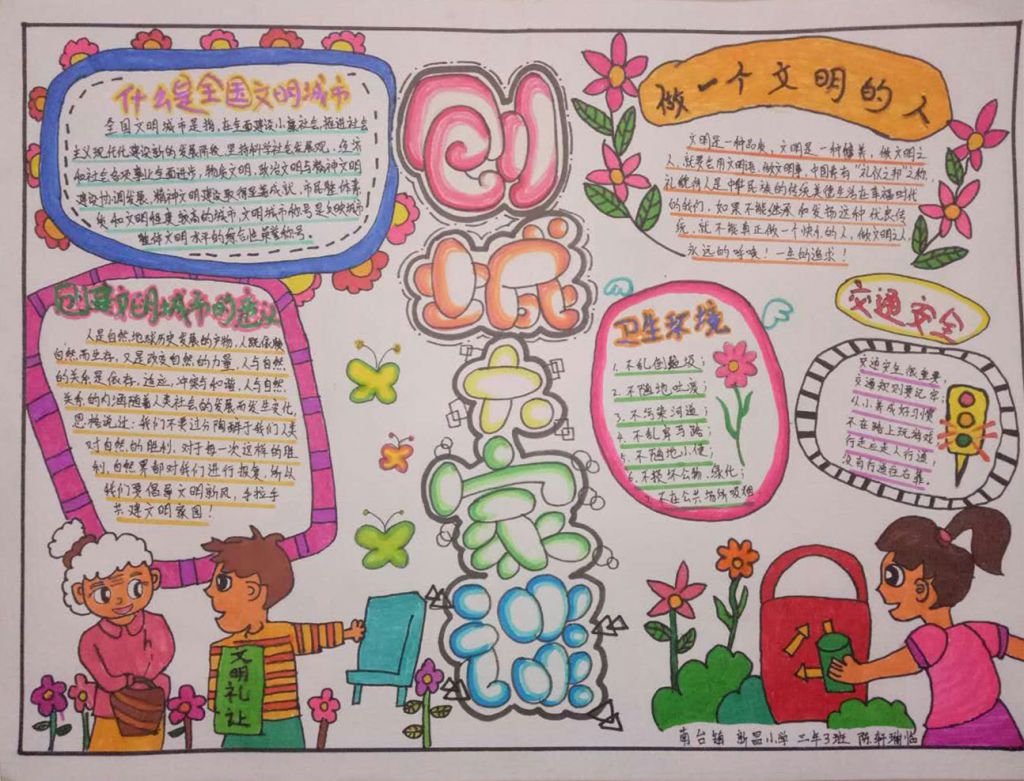 什么是全国文明城市
全国文明城市是指,在全面建设小康社会,推进社会
主义现代化建设新的发展阶段,坚持科学社会发展观,经济
和社会各项事业全面进步,物质文明,政治文明与精神文明
建设协调发展,精神文明建设取得显著成就,市民整体素
质和文明程度较高的城市,文明城市称号是反映城市
整体文明水平的综合性荣誉称号。
创建文明城市的意义
人是自然,地球历史发展的产物,人既依赖
自然而生存,又是改变自然的力量,人与自然
的关系是依存、适应、冲突与和谐,人与自然
关系的内涵随着人类社会的发展而发生变化,
恩格说过:我们不要过分陶醉于我们人类
对自然的胜利,对于每一次这样的胜
利,自然界都对我们进行报复,所以
我们要倡导文明新风,手拉手
共建文明家园!
创
城
大家
谈
做一个文明的人
文明是一种品质,文明是一种修养,做文明之
人,就要它用文明语,做文明事,中国素有“礼仪之邦”之称,
礼貌待人是中华民族的传统美德生活在幸福时代
的我们,如果不能继承和发扬这种优良传
统,就不能真正做一个快乐的人,做文明之人,
永远的呼唤!一生的追求!
卫生环境
1.不乱倒垃圾;
2.不随地吐痰;
3.不污染河道;
4.不乱穿马路;
5.不随地小便;
6.不损坏公物,绿化;
7.不在公共场所吸烟
交通安全
交通安全很重要,
交通规则要记牢;
从小养成好习惯
不在路上玩游戏
行走应走人行道;
没有行道往右靠。
文明礼让
南台镇 新昌小学 二年3班 陈轩瑞临